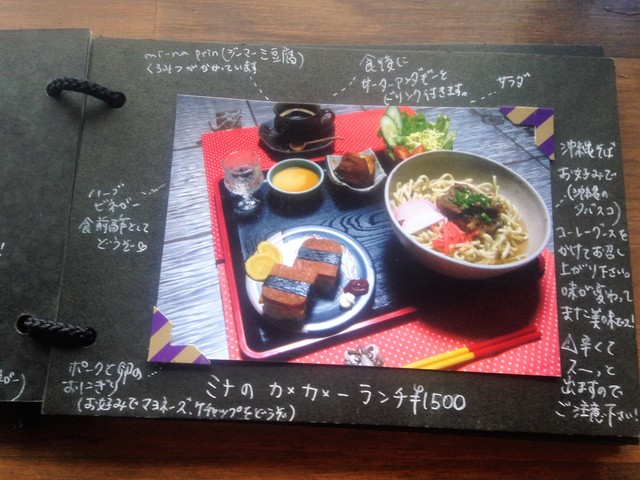 mi-na prin(ジーマーミ豆腐)
くろみつがかかっています
食後に
サーターアンダギーと
ドリンク付きます。
サラダ
ハーブ
ビネガー
食前酢として
どうぞ
沖縄そば
お好みで
(沖縄の
タバスコ)
コーレーグースを
かけてお召し
上がり下さい。
味が変わって
また美味です!
⚠辛くて
スーーっと
出ますので
ご注意下さい!
ポークと卵の
おにぎり
(お好みでマヨネーズ、ケチャップをどうぞ)
ミナの カメカメー ランチ¥1500